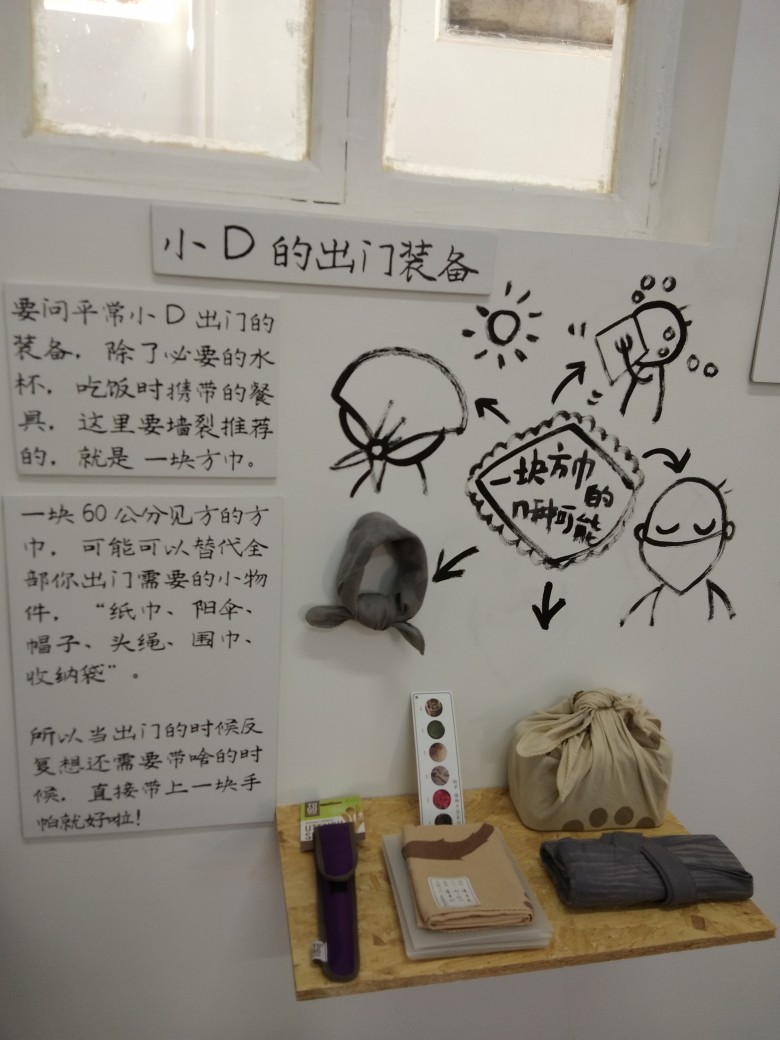 小D的出门装备
要问平常小D出门的
装备，除了必要的水
杯，吃饭时携带的餐
具，这里要墙裂推荐
的，就是一块方巾。
一块60公分见方的方
巾，可能可以替代全
部你出门需要的小物
件，“纸巾、阳伞、
帽子、头绳、围巾、
收纳袋”。
所以当出门的时候反
复想还需要带啥的时
候，直接带上一块手
帕就好啦！
一块方巾
的
几种可能